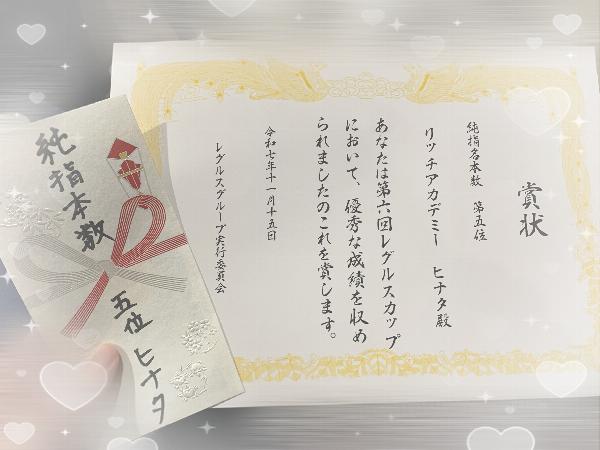 賞状
純指名本数 第五位
リッチアカデミー ヒナタ殿
あなたは第六回レグルスカップ
において、優秀な成績を収め
られましたのこれを賞します。
令和七年十一月十五日
レグルスグループ実行委員会
純指本数
五位 ヒナタ